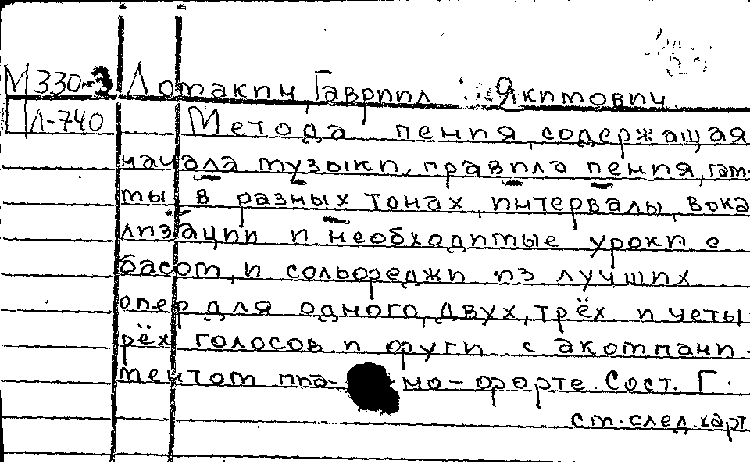 М 330-3 Лотакин, Гавриил Якимович.
Л-740 Метода пения, содержащая
начала музыки, правила пения, гам-
мы в разных тонах, интервалы, вока
лизации и необходимые уроки с
басом, и сольфеджи из лучших
опер для одного, двух, трёх и четы
рёх голосов и фуги с акомпани
ментом пиа- но-форте. Сост. Г.
см. след. карт